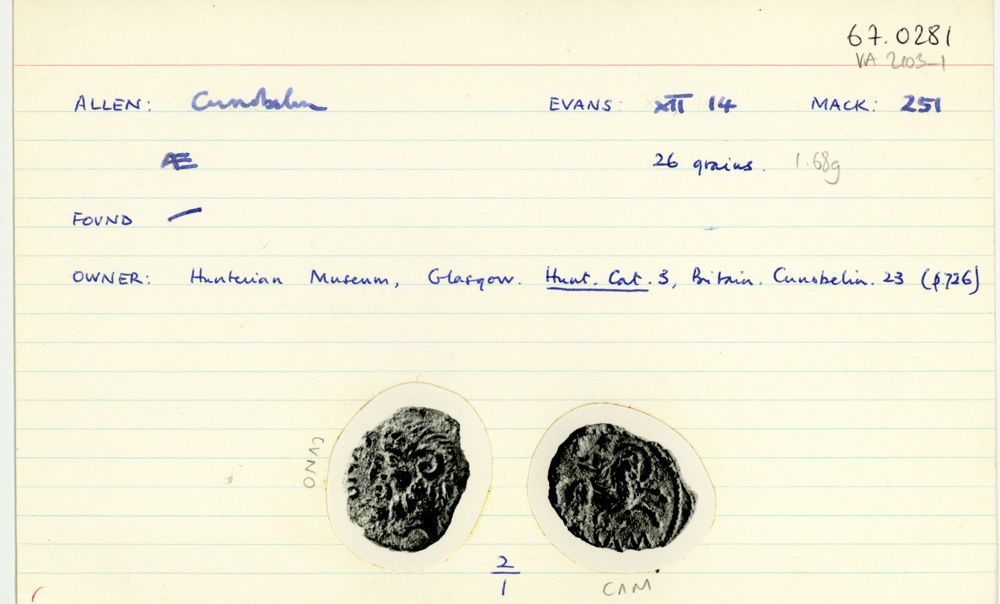 67.0281
VA 2103-1
ALLEN: Cunobelin EVANS: XII 14 MACK: 251
Æ 26 grains. 1.68g
FOUND —
OWNER: Hunterian Museum, Glasgow. Hunt. Cat. 3, Britain. Cunobelin. 23 (p.726)
CVNO
2
1
CAM